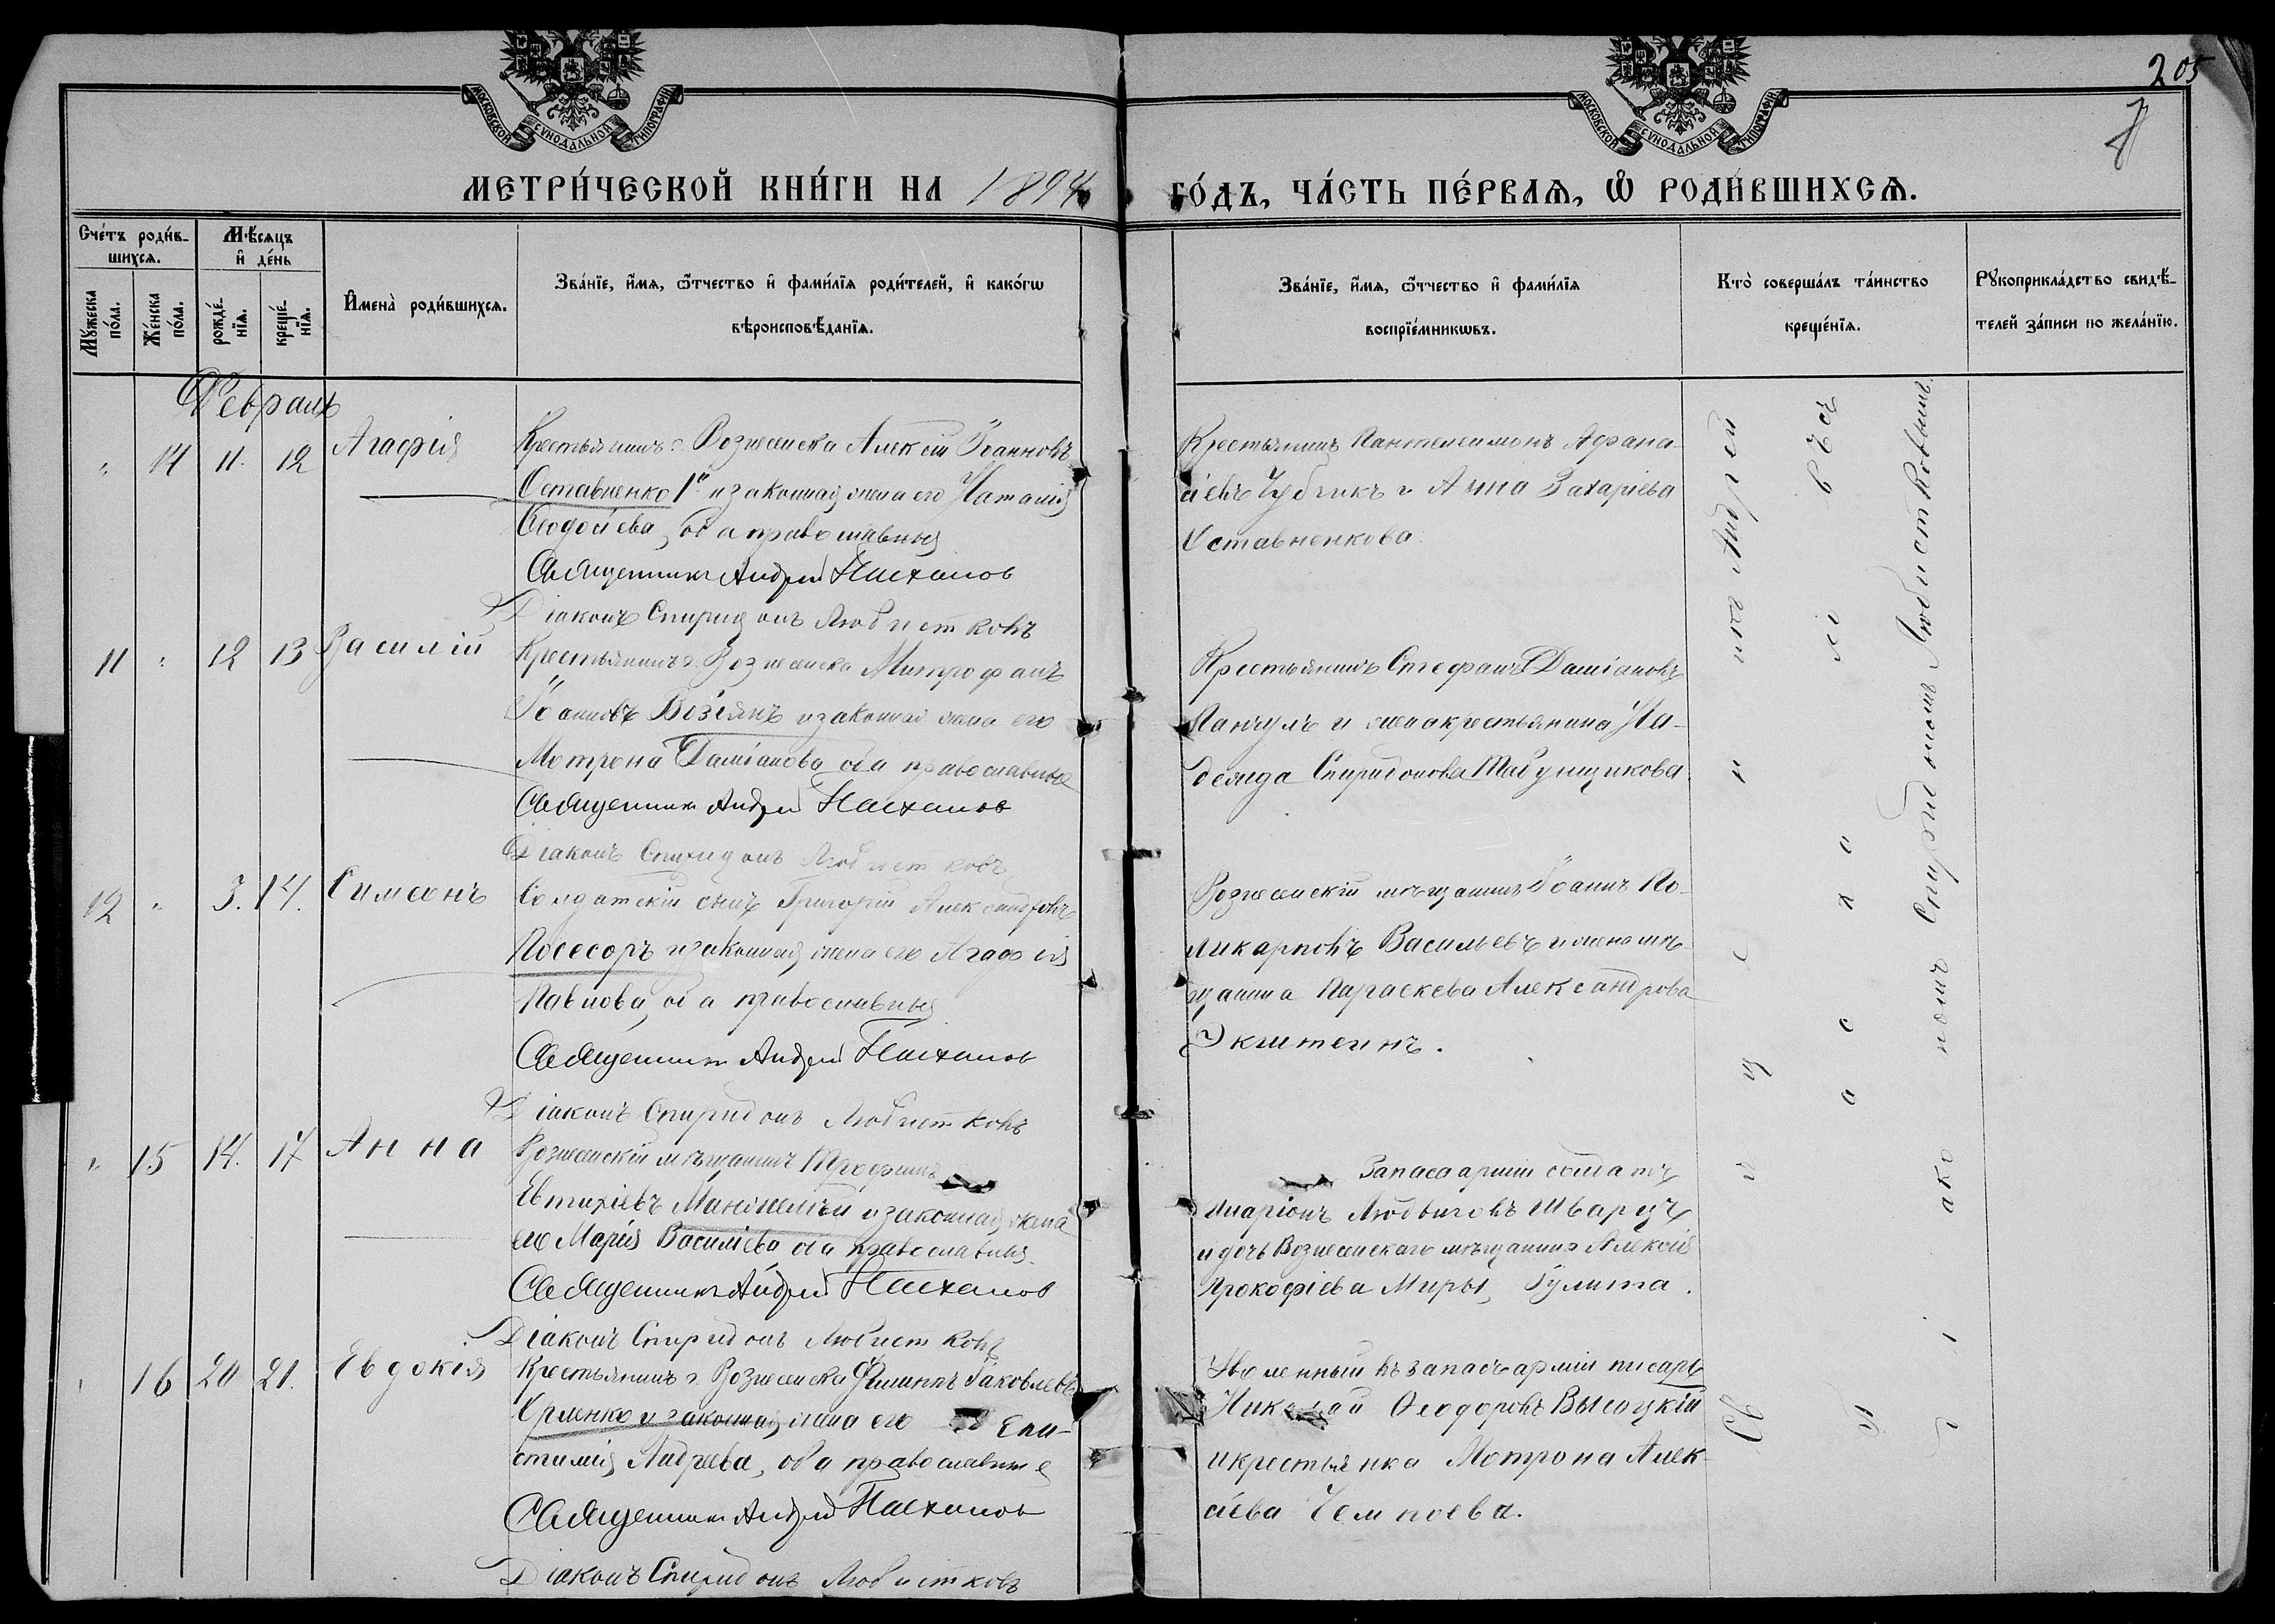 205
8
МОСКОВСКОЙ СѴНОДАЛЬНОЙ ТИПОГРАФІИ
МОСКОВСКОЙ СѴНОДАЛЬНОЙ ТИПОГРАФІИ
МЕТРИ́ЧЕСКОЙ КНИ́ГИ НА 1894
ГО́ДЪ, ЧА́СТЬ ПЕ́РВАѦ, Ѡ РОДИ́ВШИХСѦ.
Сче́тъ роди́в-
шихсѧ.
Мѣ́сѧцъ
и҆ де́нь
Мꙋ́жеска
по́ла.
Же́нска
по́ла.
рожде́-
нїѧ.
креще́-
нїѧ.
И҆мена̀ роди́вшихсѧ.
Зва́нїе, и҆́мѧ, ѻ҆́тчество и҆ фами́лїѧ роди́телей, и҆ како́гѡ
вѣроисповѣ́данїѧ.
Зва́нїе, и҆́мѧ, ѻ҆́тчество и҆ фами́лїѧ
воспрїе́мникѡвъ.
Кто̀ соверша́лъ та́инство
креще́нїѧ.
Рꙋкоприкла́дство свидѣ́-
телей за́писи по жела́нїю.
Февраль
" 14 11. 12 Агафія
Крестьянинъ г. Вознесенска Алексій Іоанновъ
Оставненко 1й и законная жена его Наталія
Ѳеодосіева, оба православныя
Священникъ Андрей Пасхалов
Діаконъ Спиридонъ Любистковъ
Крестьянинъ Пантелеимонъ Афана-
сіевъ Чубчикъ и Анна Захаріева
Оставненкова.
11 " 12 13 Василій
Крестьянинъ г. Вознесенска Митрофанъ
Іоанновъ Візіянъ и законная жена его
Мотрона Даміанова оба православныя
Священникъ Андрей Пасхалов
Діаконъ Спиридонъ Любистковъ
Крестьянинъ Стефанъ Даміановъ
Панчулъ и жена крестьянина На-
дежда Спиридонова Табунщикова
12 " 3. 14. Симеонъ
Солдатскій сынъ Григорій Александровъ
Посесоръ и законная жена его Агафія
Павлова, оба православныя
Священникъ Андрей Пасхалов
Діаконъ Спиридонъ Любистковъ
Вознесенскій мѣщанинъ Іоаннъ По-
ликарповъ Васильевъ и жена мѣ-
щанина Параскева Александрова
Экштеинъ.
" 15 14. 17 Анна
Вознесенскій мѣщанинъ Трофимъ
Евтихіевъ Манжелѣй и законная жена
его Марія Василіева оба православныя.
Священникъ Андрей Пасхалов
Діаконъ Спиридонъ Любистковъ
Запаса арміи солдатъ
Иларіонъ Людвиговъ Шварцъ
и дочь Вознесенскаго мѣщанина Алексія
Прокофіева Миры, Іулита.
" 16 20 21. Евдокія
Крестьянинъ г. Вознесенска Филиппъ Іаковлевъ
Урленко и законная жена его Епи-
стимія Андреева, оба православныя
Священникъ Андрей Пасхалов
Діаконъ Спиридонъ Любистковъ
Уволенный въ запасъ арміи писарь
Николай Ѳеодоровъ Высоцкій
и крестьянка Мотрона Алек-
сіева Чемпоева.
Священникъ Андрей
Пасхаловъ съ
діакономъ Спиридономъ Любистковымъ.